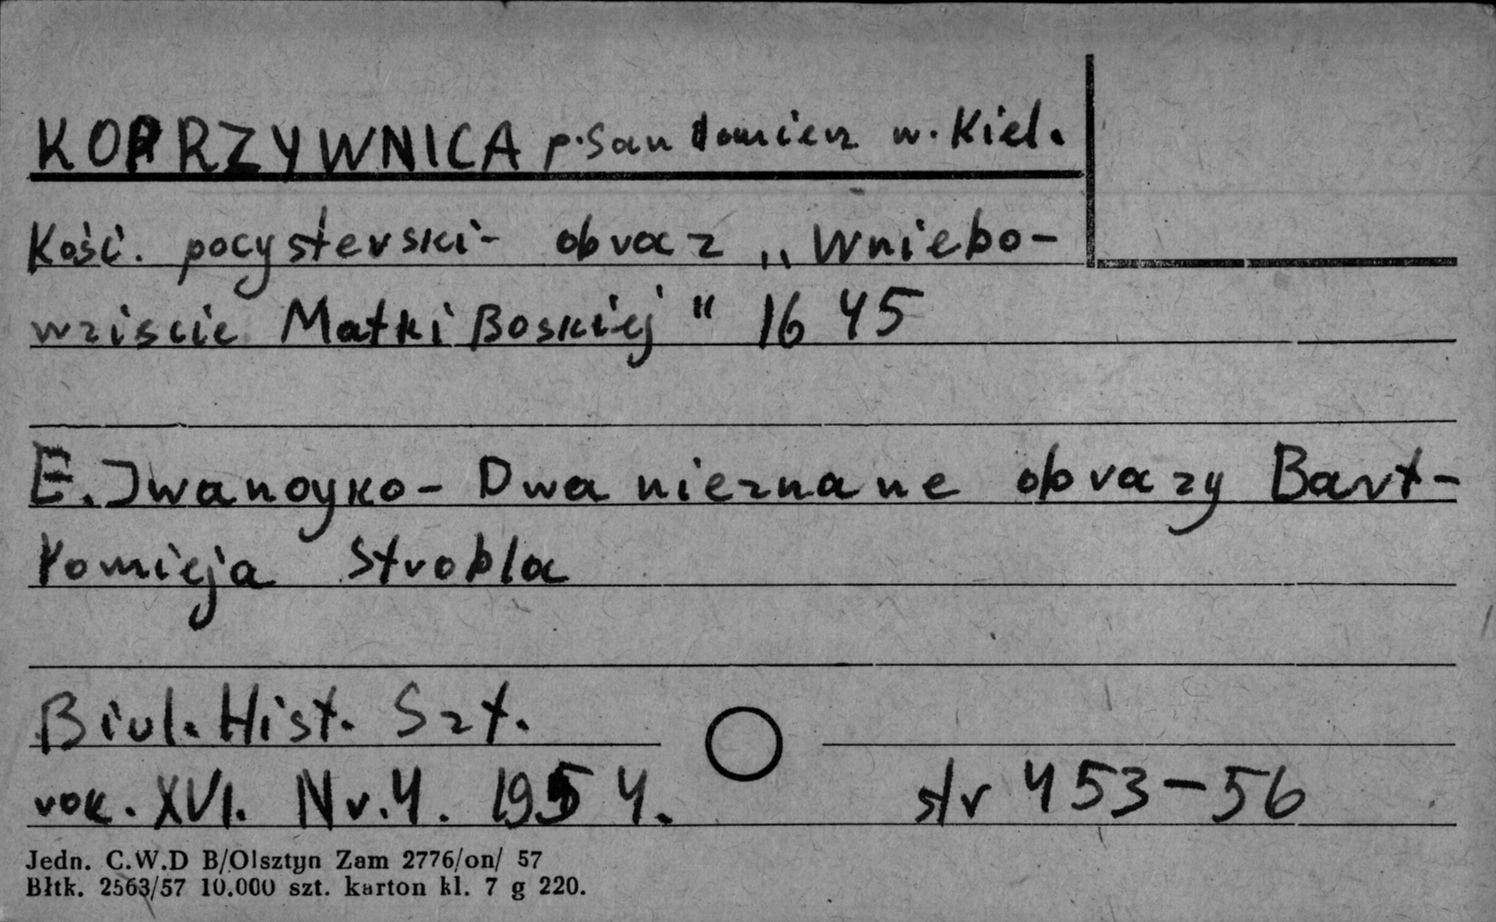 KOPRZYWNICA p. Sandomierz w. Kiel.
Kość. pocysterski - obraz „Wniebo-
wzięcie Matki Boskiej" 1645
E. Iwanoyko - Dwa nieznane obrazy Bart-
łomieja Strobla
Biul. Hist. Szt.
rok. XVI. Nr. 4. 1954. str 453-56
Jedn. C.W.D B/Olsztyn Zam 2776/on/ 57
Błtk. 2563/57 10.000 szt. karton kl. 7 g 220.